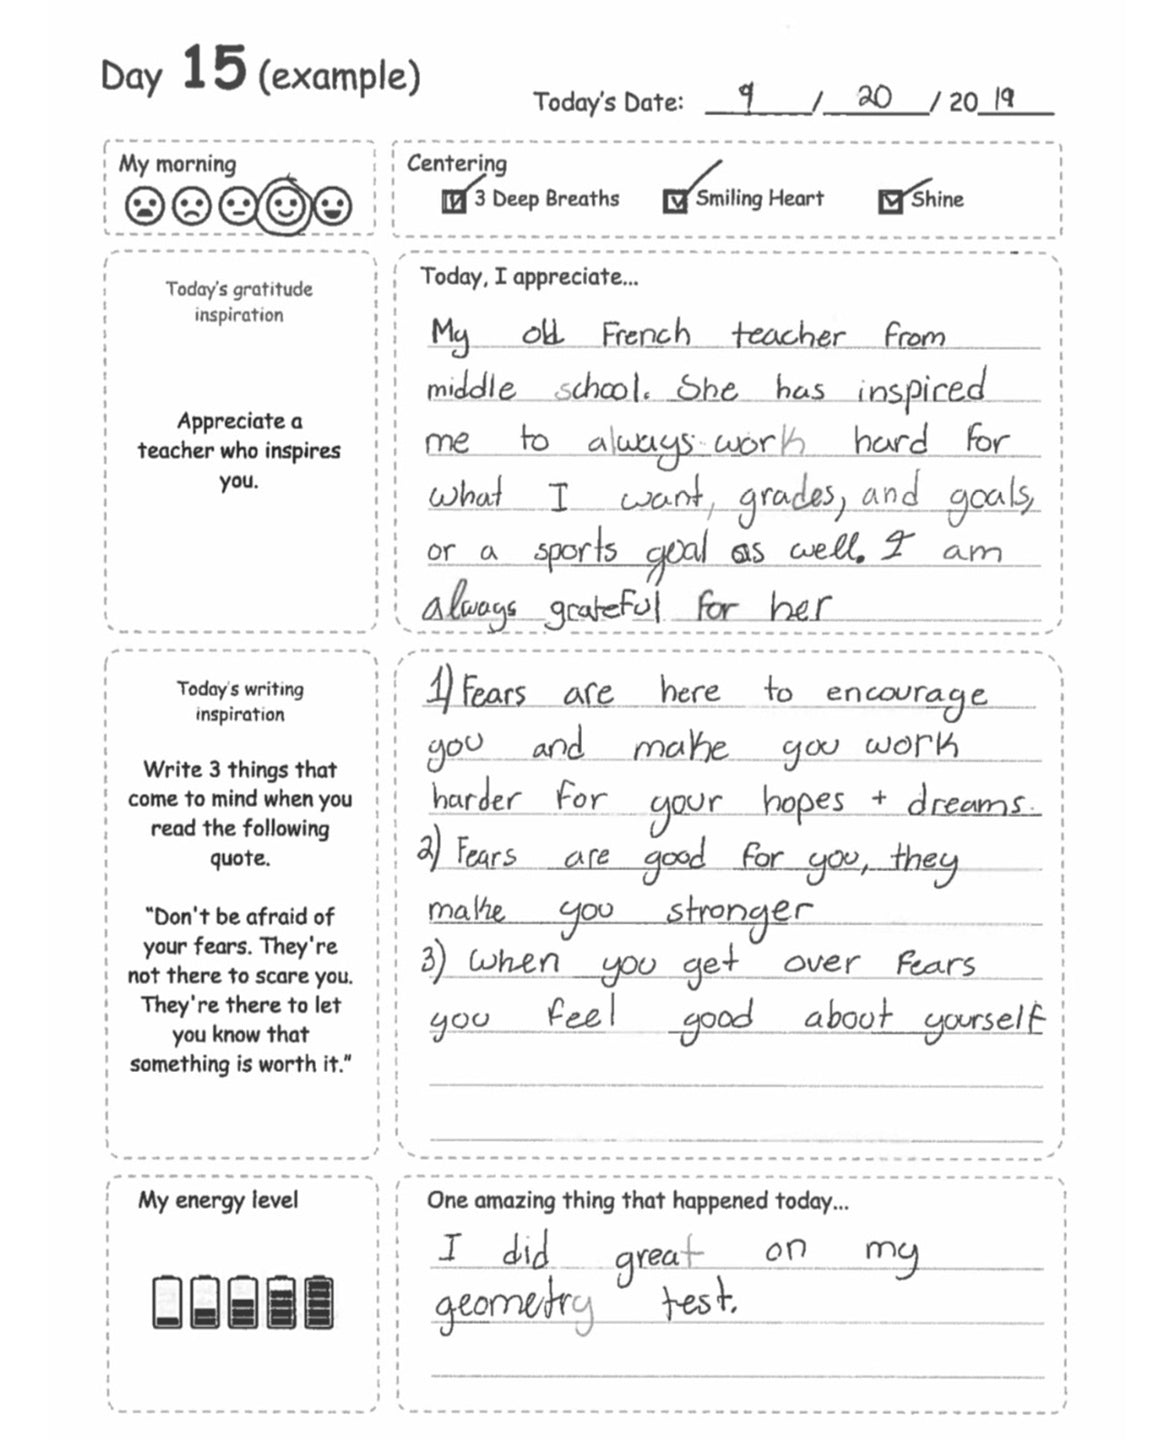 Day 15 (example)
Today's Date: 9 / 20 / 2019
My morning
Centering
3 Deep Breaths Smiling Heart Shine
Today's gratitude
inspiration
Appreciate a
teacher who inspires
you.
Today, I appreciate...
My old French teacher from
middle school. She has inspired
me to always work hard for
what I want, grades, and goals,
or a sports goal as well. I am
always grateful for her
Today's writing
inspiration
Write 3 things that
come to mind when you
read the following
quote.
"Don't be afraid of
your fears. They're
not there to scare you.
They're there to let
you know that
something is worth it."
1) Fears are here to encourage
you and make you work
harder for your hopes + dreams.
2) Fears are good for you, they
make you stronger
3) When you get over fears
you feel good about yourself
My energy level
One amazing thing that happened today...
I did great on my
geometry test.